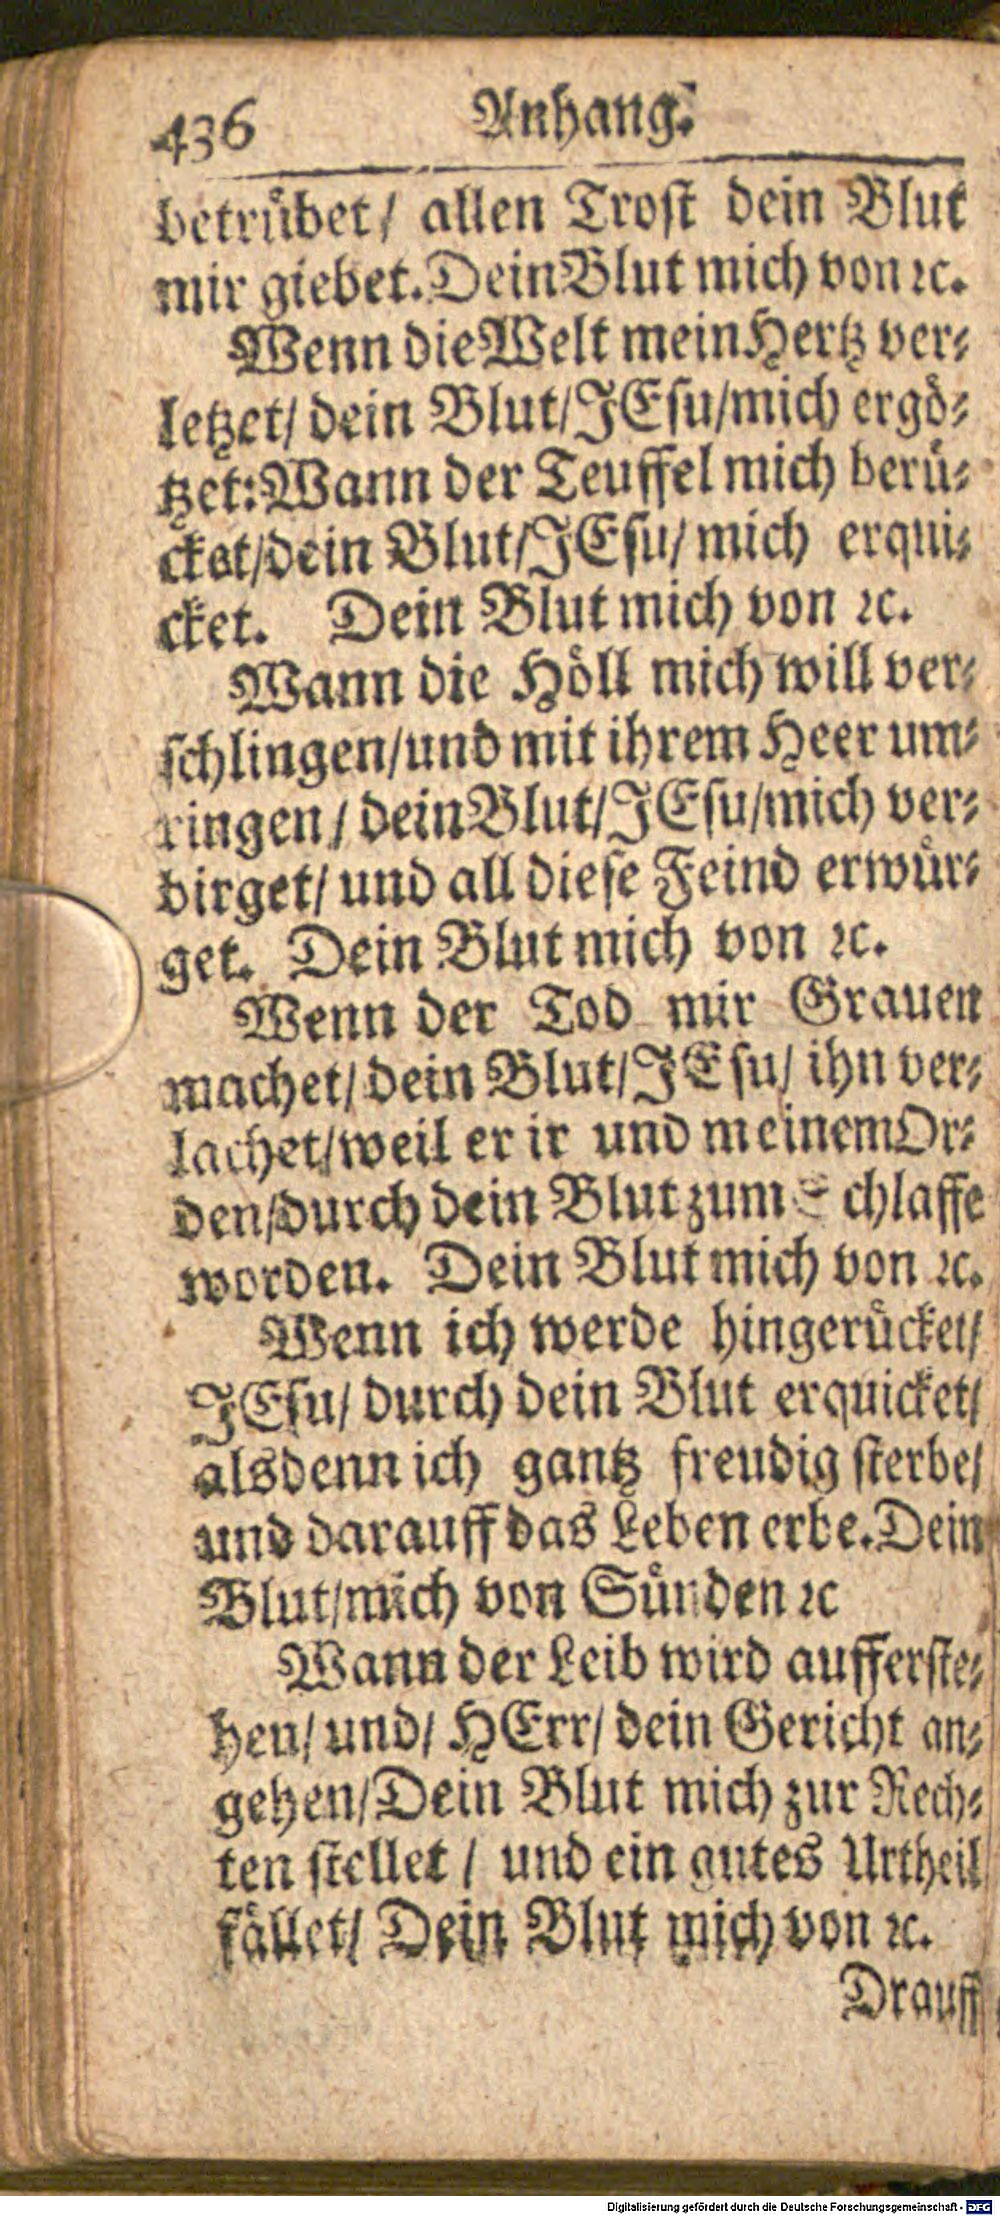 436 Anhang.
betrübet/ allen Trost dein Blut
mir giebet. Dein Blut mich von ꝛc.
Wenn die Welt mein Hertz ver⸗
letzet/ dein Blut/ JEsu/ mich ergö⸗
tzet: Wann der Teuffel mich berü⸗
cket/ dein Blut/ JEsu/ mich erqui⸗
cket. Dein Blut mich von ꝛc.
Wann die Höll mich will ver⸗
schlingen/ und mit ihrem Heer um⸗
ringen/ dein Blut/ JEsu/ mich ver⸗
birget/ und all diese Feind erwür⸗
get. Dein Blut mich von ꝛc.
Wenn der Tod mir Grauen
machet/ dein Blut/ JEsu/ ihn ver⸗
lachet/ weil er ir und meinem Or⸗
den/ durch dein Blut zum Schlaffe
worden. Dein Blut mich von ꝛc.
Wenn ich werde hingerücket/
JEsu/ durch dein Blut erquicket/
alsdenn ich gantz freudig sterbe/
und darauff das Leben erbe. Dein
Blut/ mich von Sünden ꝛc
Wann der Leib wird aufferste⸗
hen/ und/ HErr/ dein Gericht an⸗
gehen/ Dein Blut mich zur Rech⸗
ten stellet / und ein gutes Urtheil
fället/ Dein Blut mich von ꝛc.
Drauff
Digitalisierung gefördert durch die Deutsche Forschungsgemeinschaft - DFG